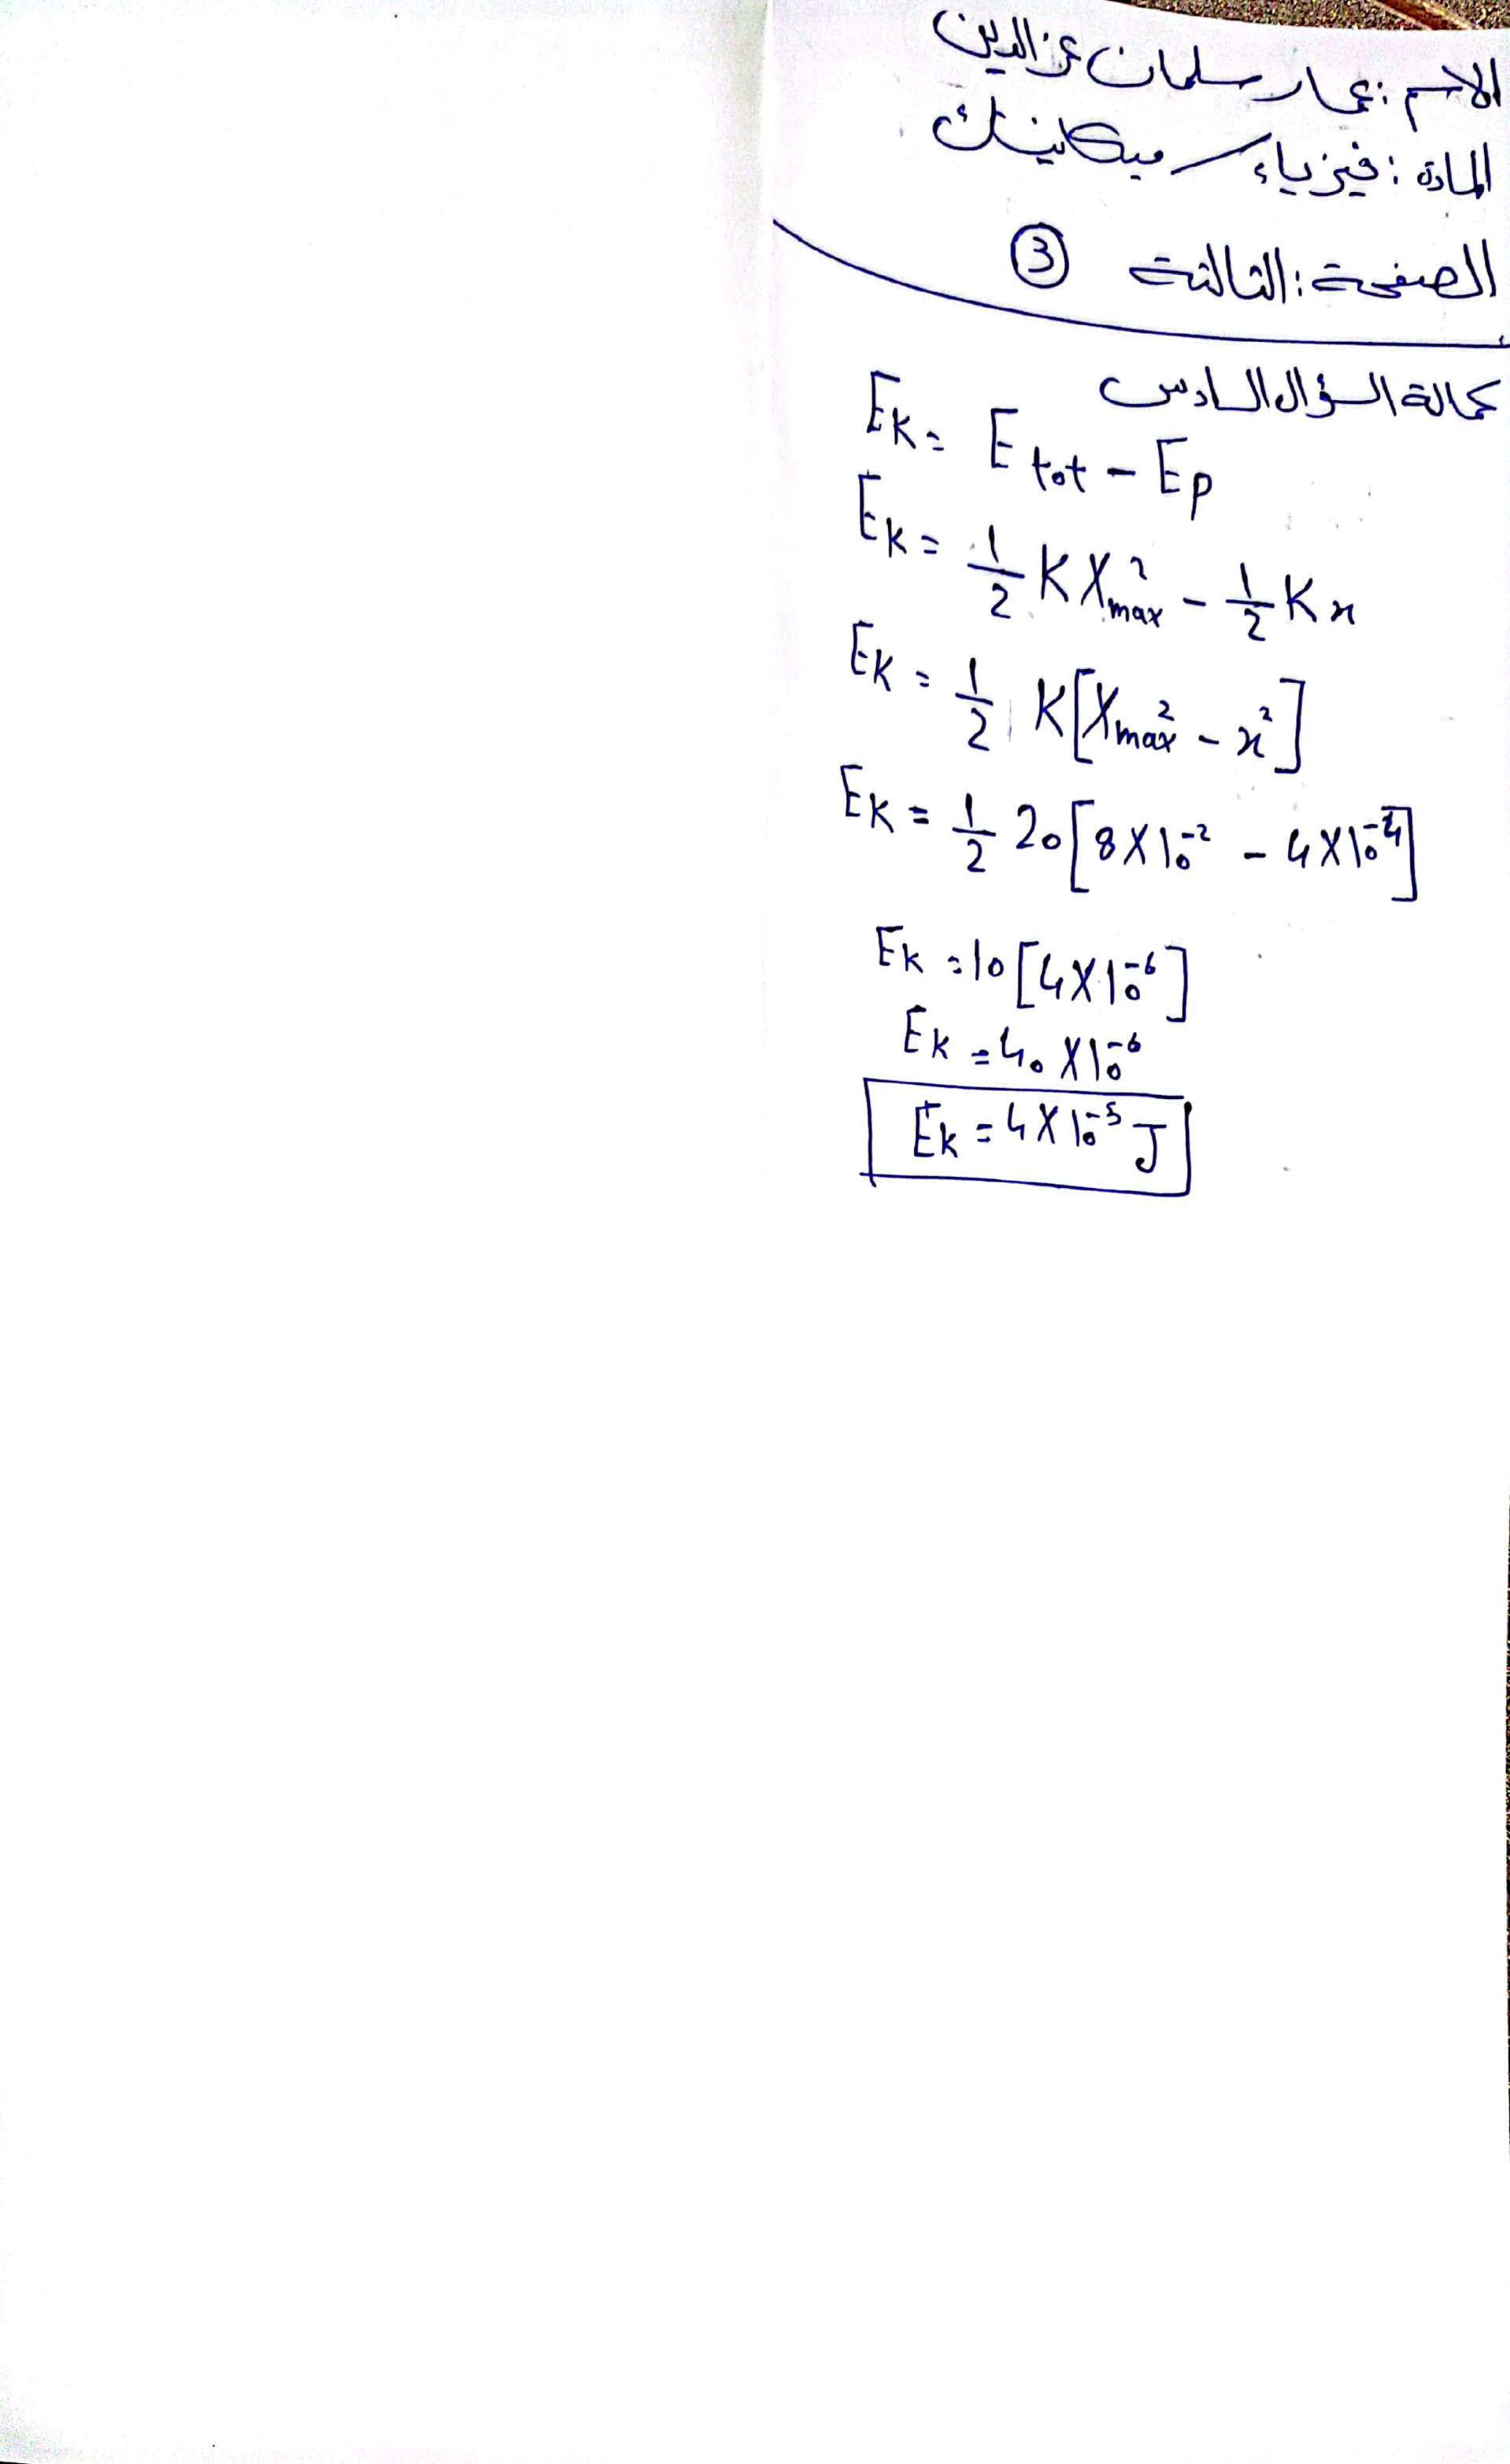 الاسم : عمار سلمان عز الدين
المادة : فيزياء ميكانيك
الصفحة : الثالثة ③
تكمالة السؤال السادس
Ek = E tot - Ep
Ek = 1/2 K X²max - 1/2 K x
Ek = 1/2 K [X²max - x²]
Ek = 1/2 20 [8 × 10⁻² - 4 × 10⁻⁴]
Ek = 10 [4 × 10⁻⁶]
Ek = 40 × 10⁻⁶
Ek = 4 × 10⁻⁵ J